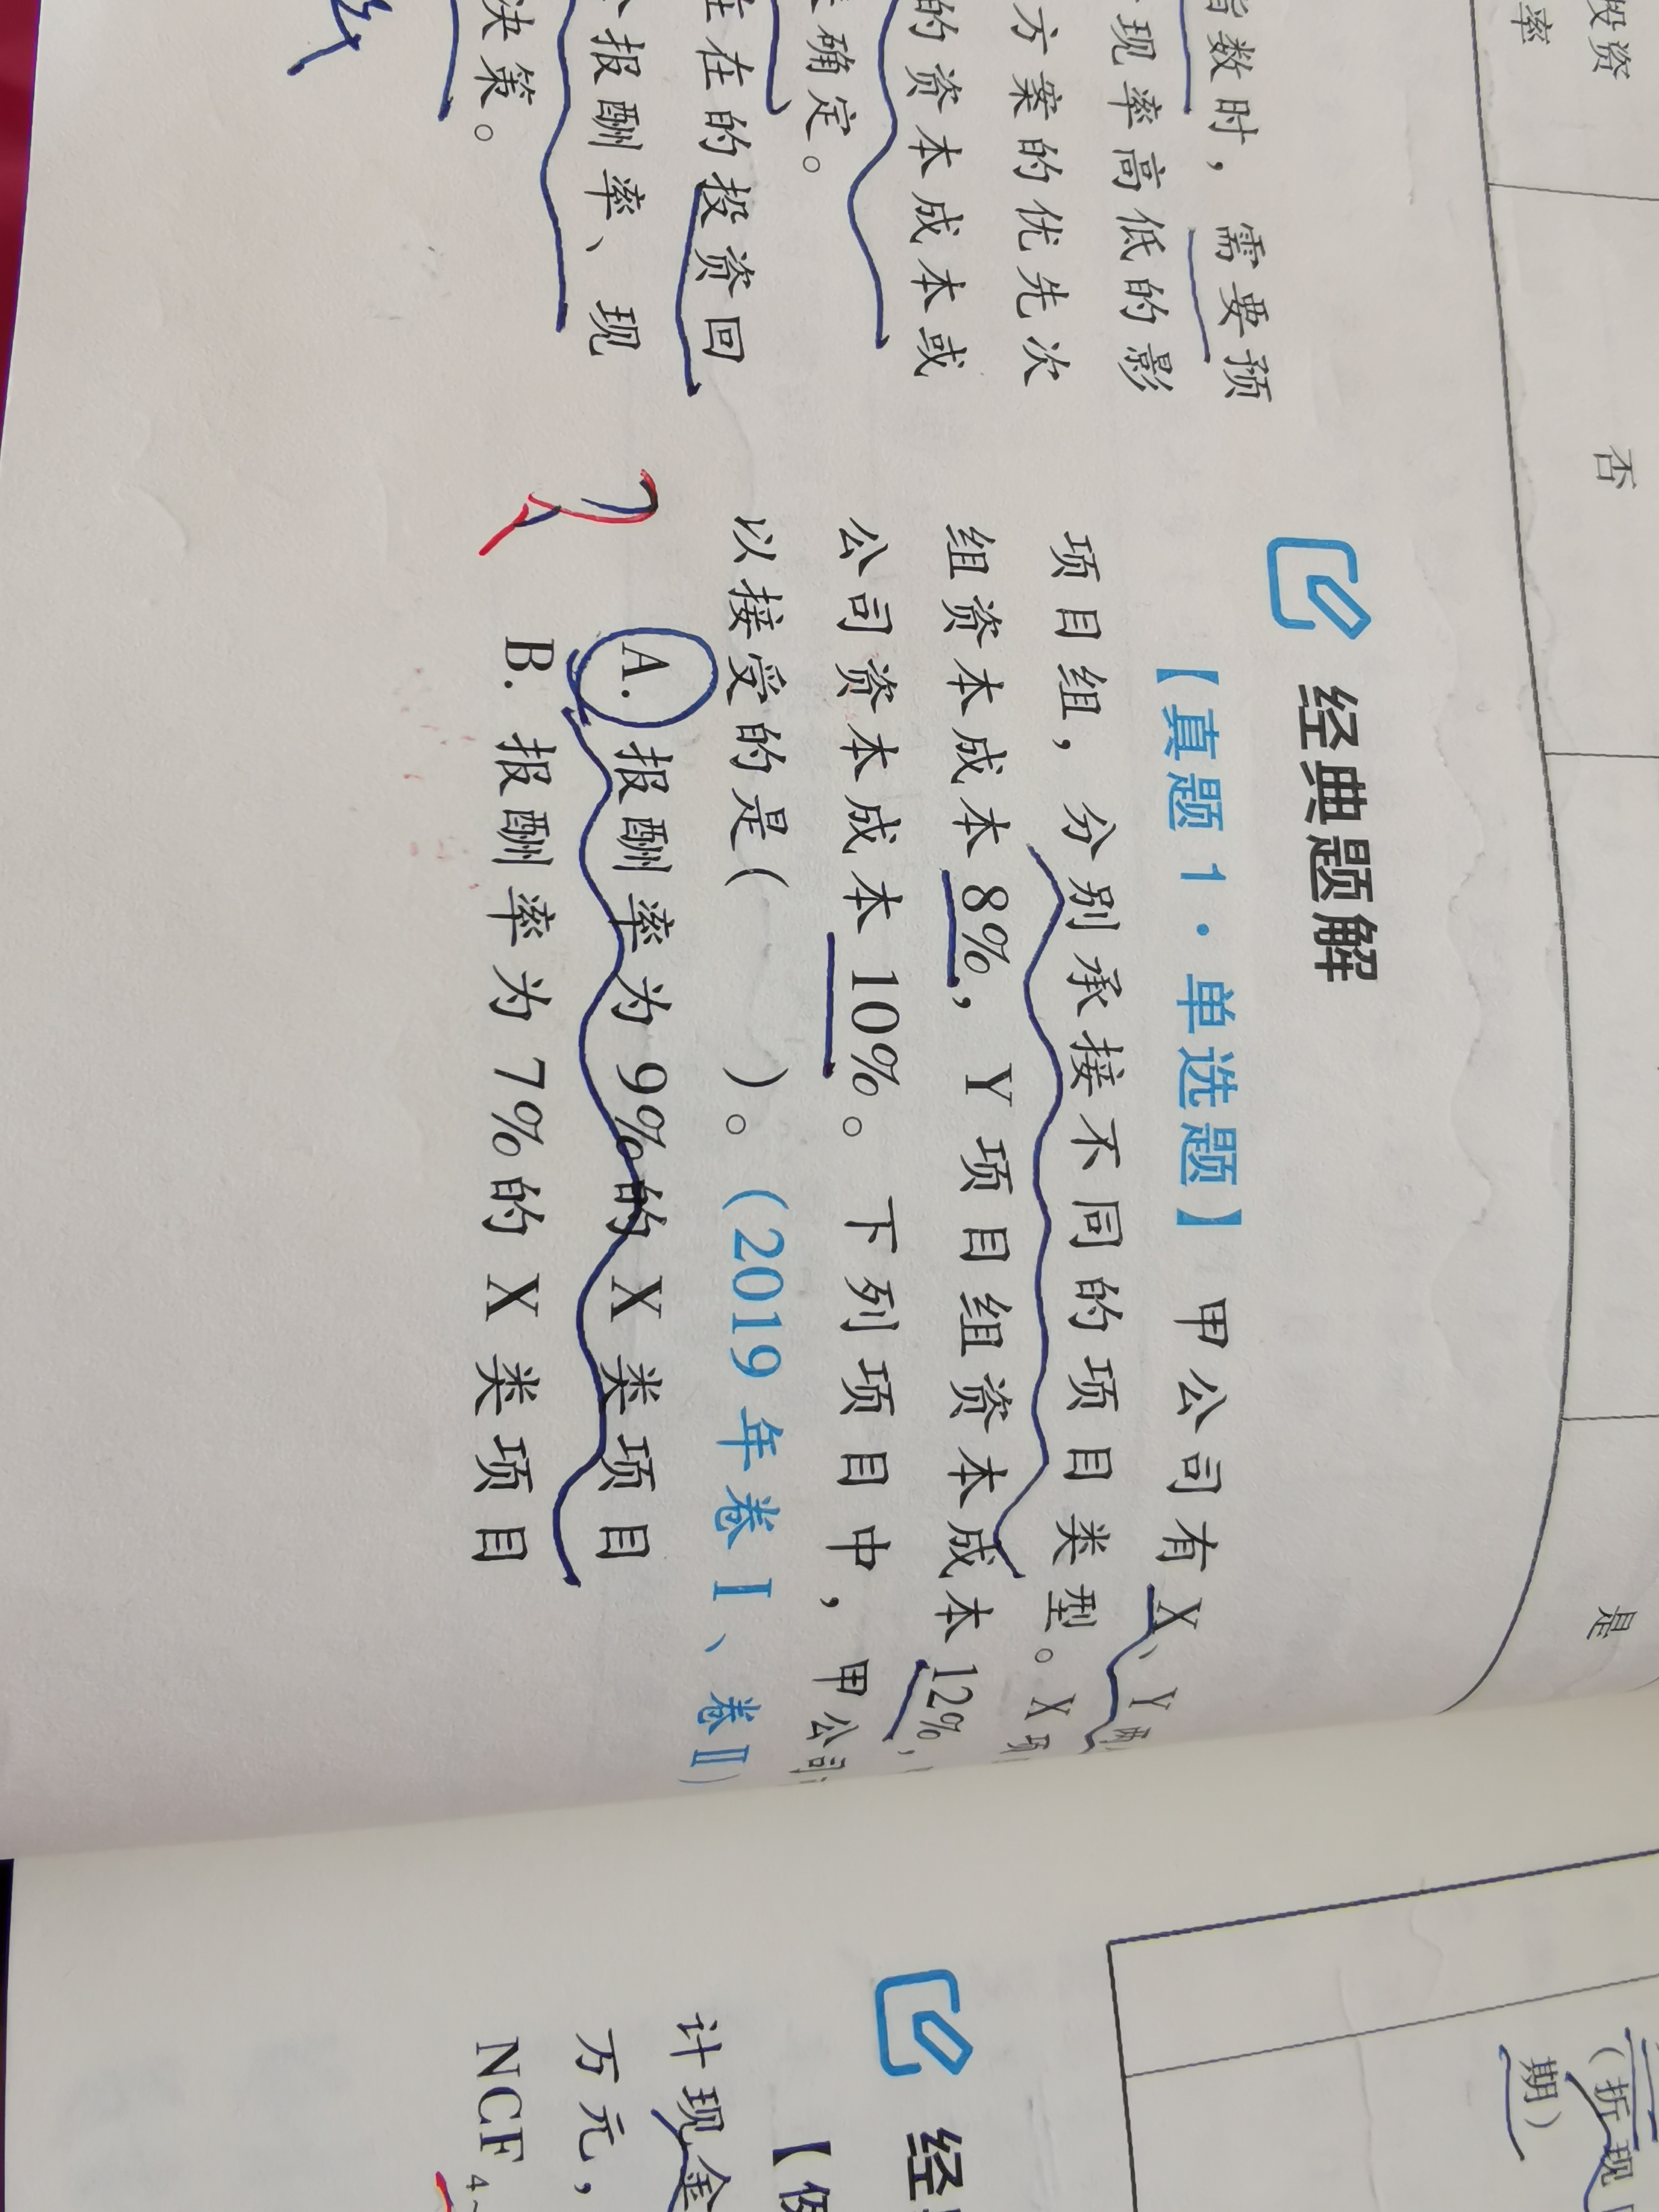 投资
率
否
是
指数时，需要预
现率高低的影
方案的优先次
的资本成本或
确定。
在的投资回
报酬率、现
决策。
经典题解
【真题1·单选题】甲公司有X、Y两
项目组，分别承接不同的项目类型。X项
组资本成本8%，Y项目组资本成本12%，
公司资本成本10%。下列项目中，甲公司
以接受的是( )。(2019年卷Ⅰ、卷Ⅱ)
A. 报酬率为9%的X类项目
B. 报酬率为7%的X类项目
(折现
期)
经
【例
计现金
万元，
NCF4~